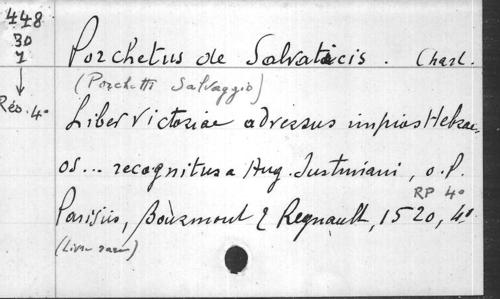 448
30
1
Rés. 4°
Porchetus de Salvaticis. Chart.
(Porchetti Salvaggio)
Liber Victoriae adversus impios Hebrae-
os... recognitus a Aug. Justiniani, o.P.
RP 4°
Parisiis, & Regnault, 1520, 4°.
(Livre rare)